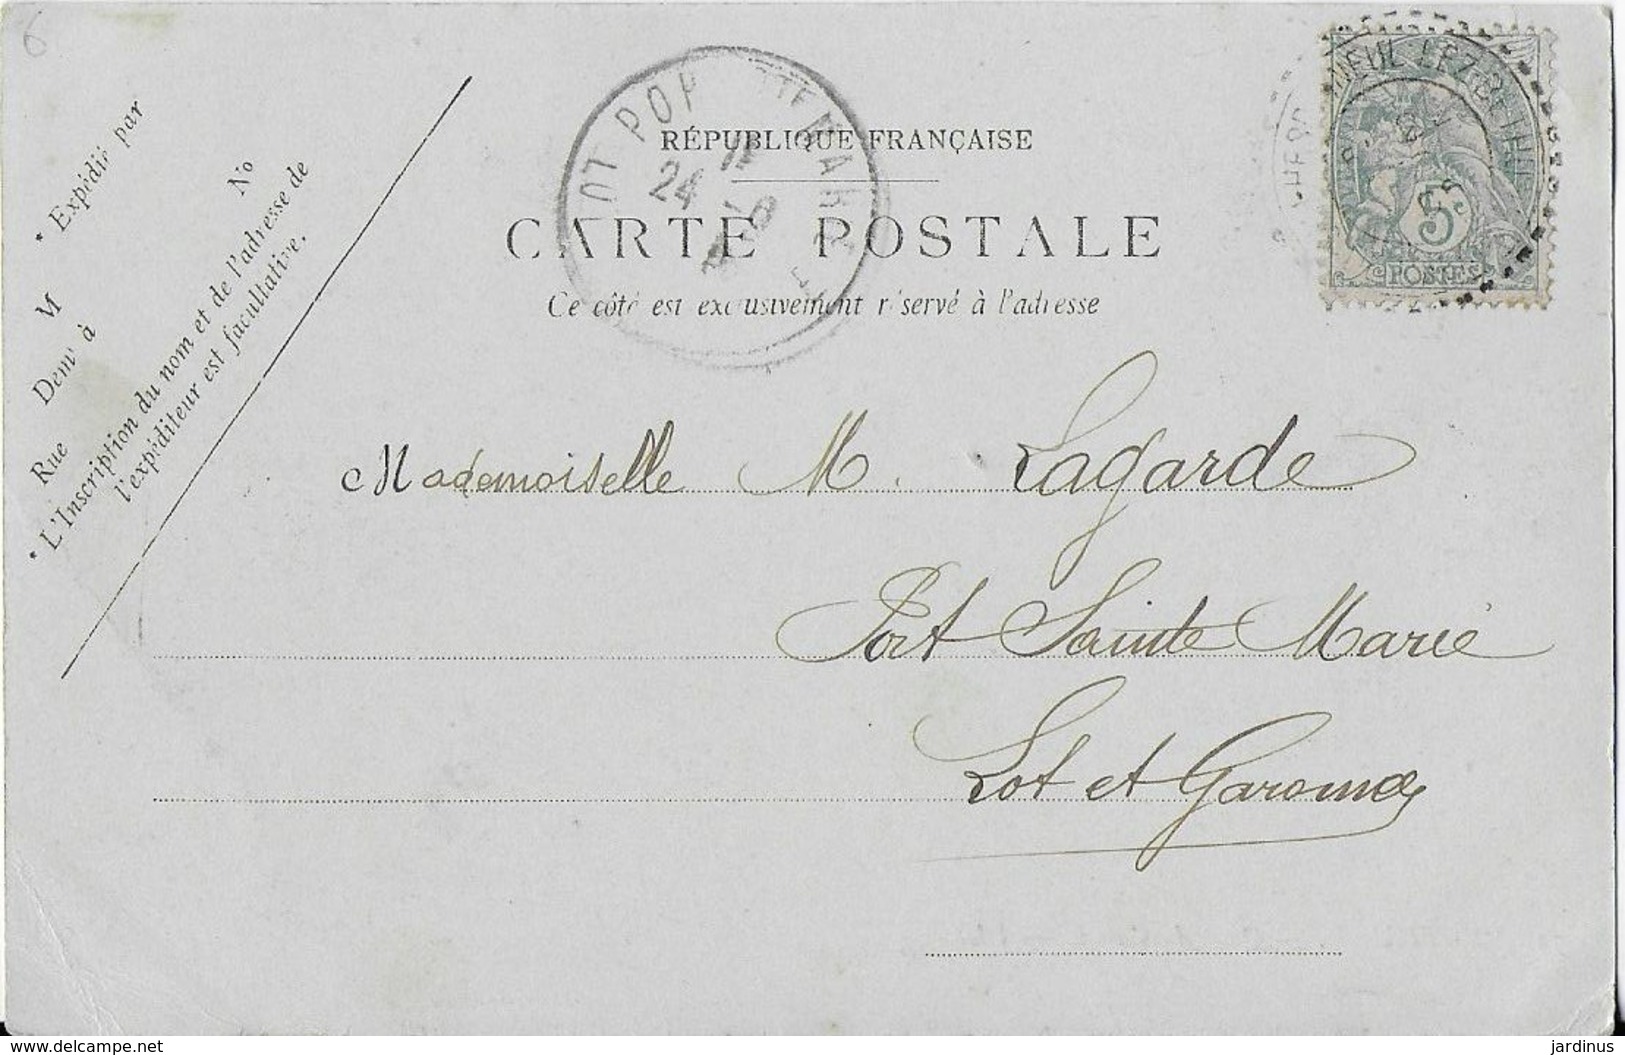 6
RÉPUBLIQUE FRANÇAISE
CARTE POSTALE
Ce côté est exclusivement réservé à l'adresse
* Expédié par
M
Demt à
Rue
No
* L'Inscription du nom et de l'adresse de
l'expéditeur est facultative.
5c
POSTES
24
Mademoiselle M. Lagarde
Port Sainte Marie
Lot et Garonne
www.delcampe.net
jardinus